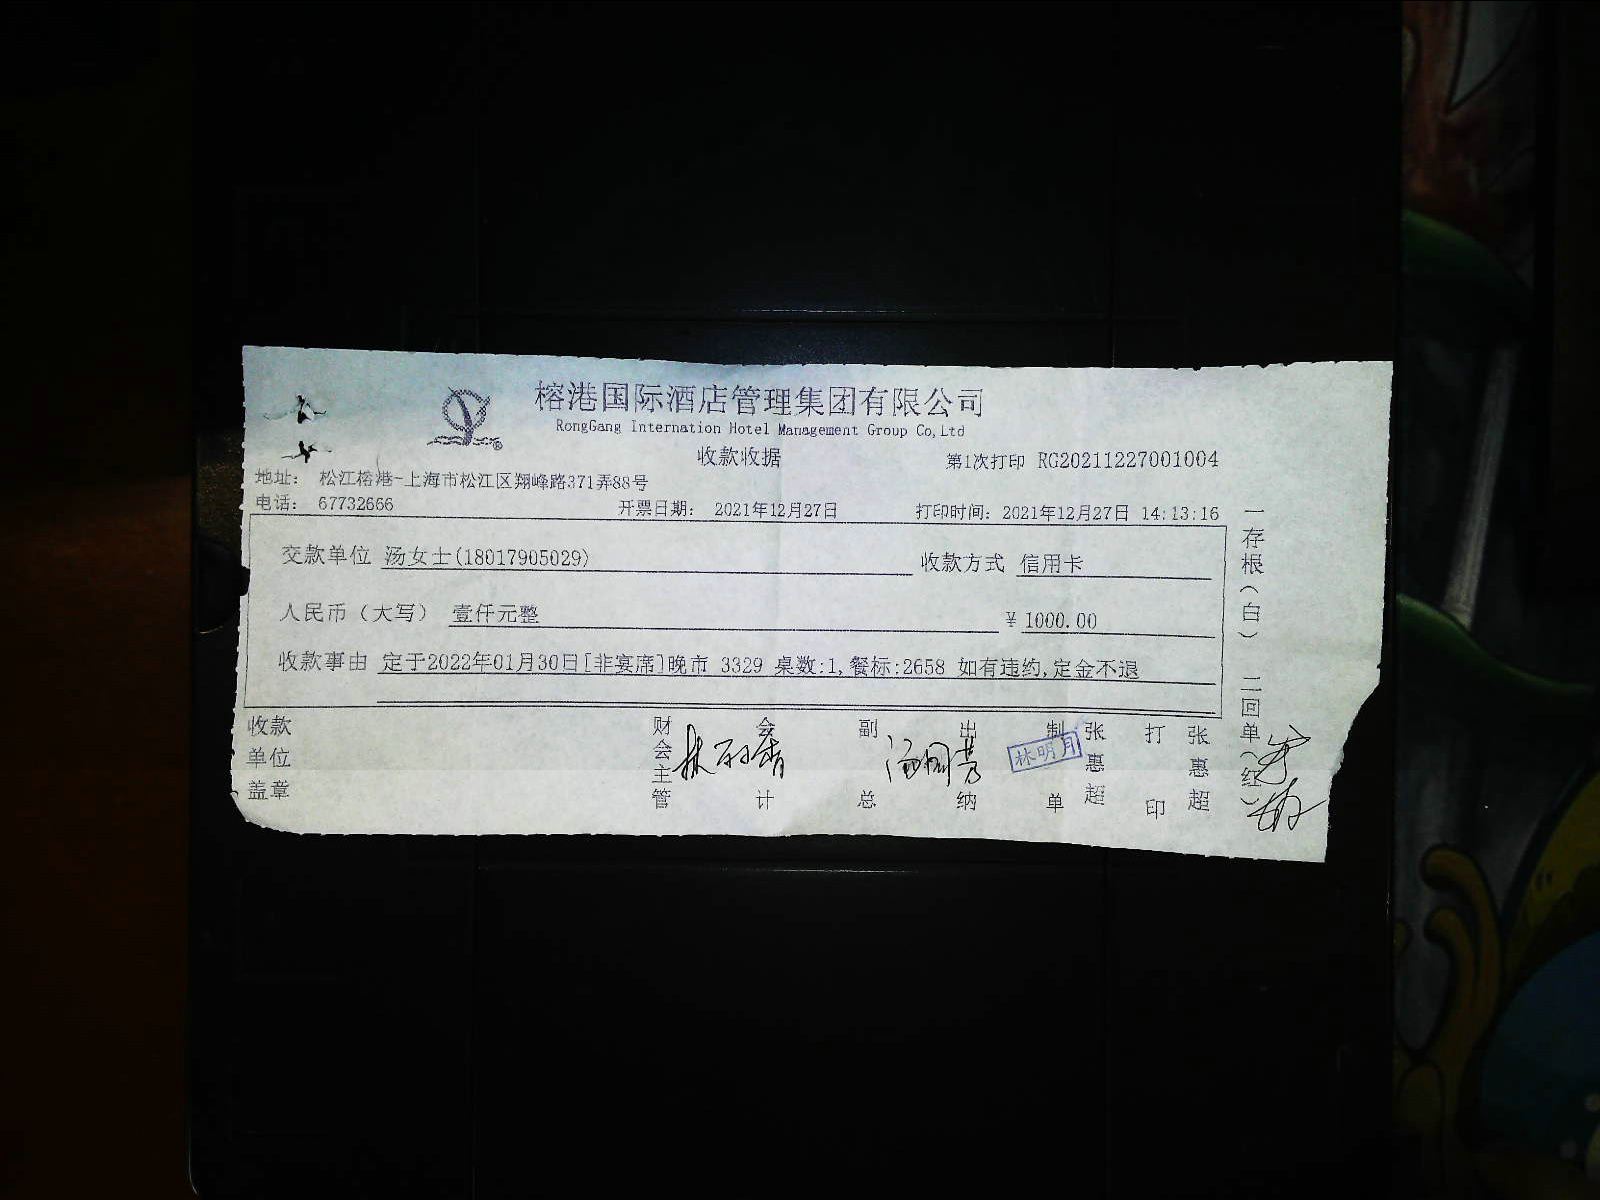 榕港国际酒店管理集团有限公司
RongGang Internation Hotel Management Group Co,Ltd
收款收据
第1次打印 RG20211227001004
地址： 松江榕港-上海市松江区翔峰路371弄88号
电话： 67732666
开票日期： 2021年12月27日
打印时间：2021年12月27日 14:13:16
交款单位 汤女士(18017905029)
收款方式 信用卡
人民币（大写） 壹仟元整
¥ 1000.00
收款事由 定于2022年01月30日[非宴席]晚市 3329 桌数:1,餐标:2658 如有违约,定金不退
一存根（白） 二回单（红）
收款单位盖章
财会主管
会计
副总
出纳
制单
林明月
张惠超
打印
张惠超